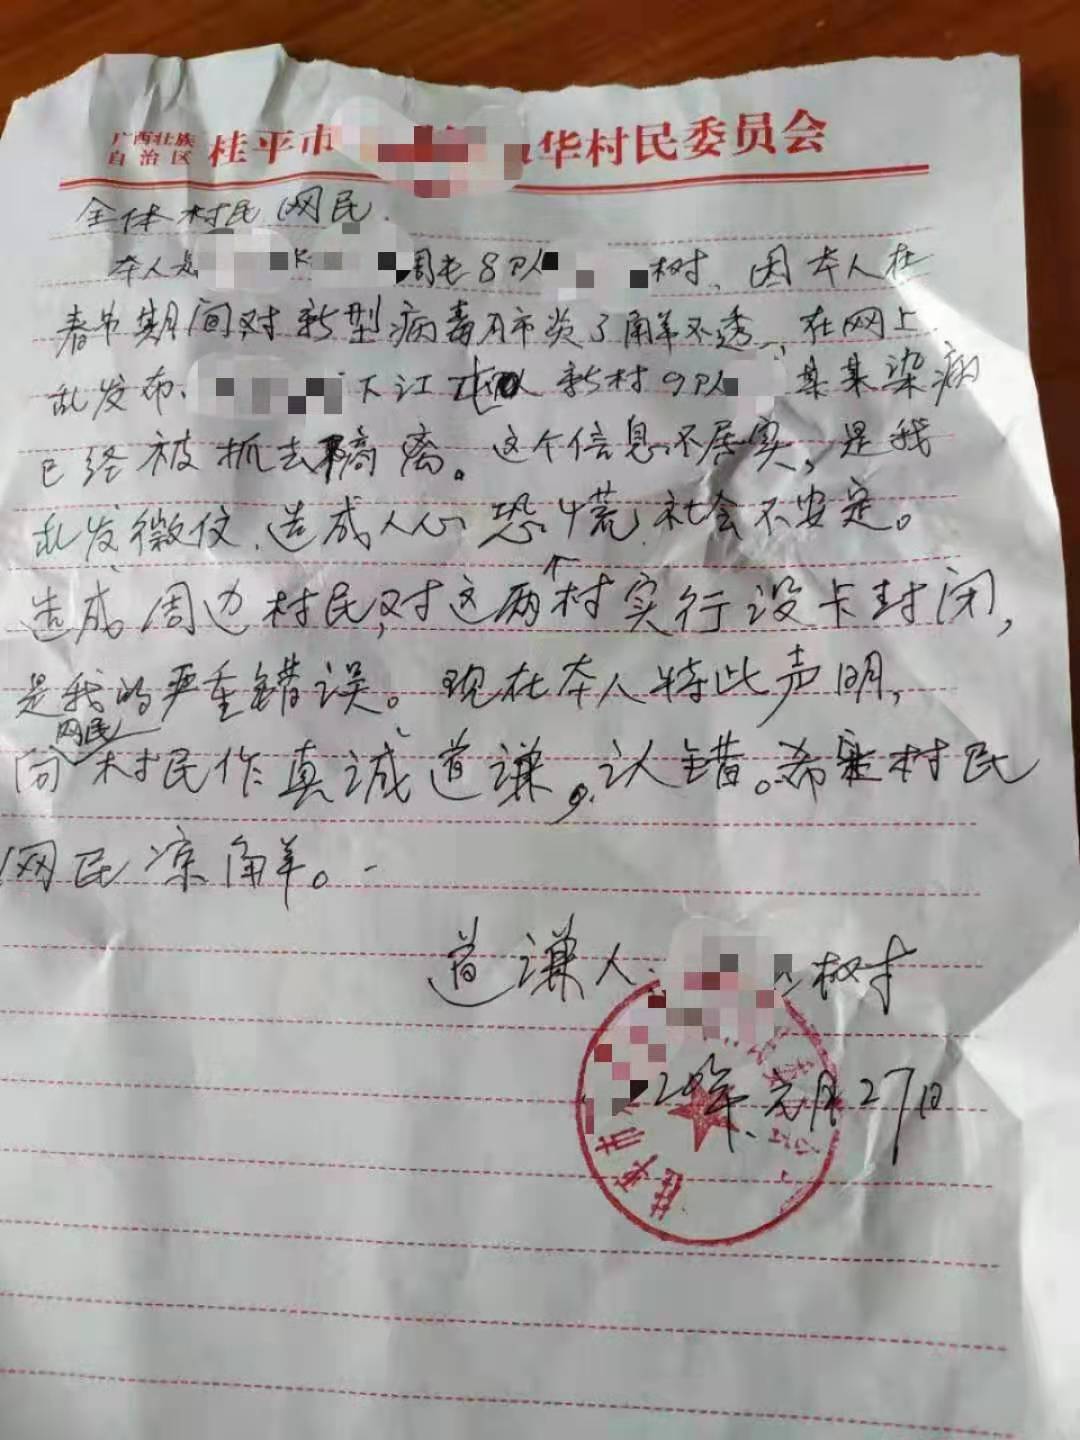 广西壮族
自治区
桂平市
华村民委员会
全体村民网民.
本人是 周屯8队 树、因本人在
春节期间对新型病毒肺炎了解不透、在网上
乱发布、 下江 新村9队 某某染病
已经被抓去隔离。这个信息不居实,是我
乱发微仪、造成人心恐慌,社会不安定。
造成周边村民,对这两个村实行设卡封闭,
是我的严重错误。现在本人特此声明,
向网民村民作真诚道谦,认错。希望村民
网民凉解。
道谦人: 树
20年元月27日
桂平市